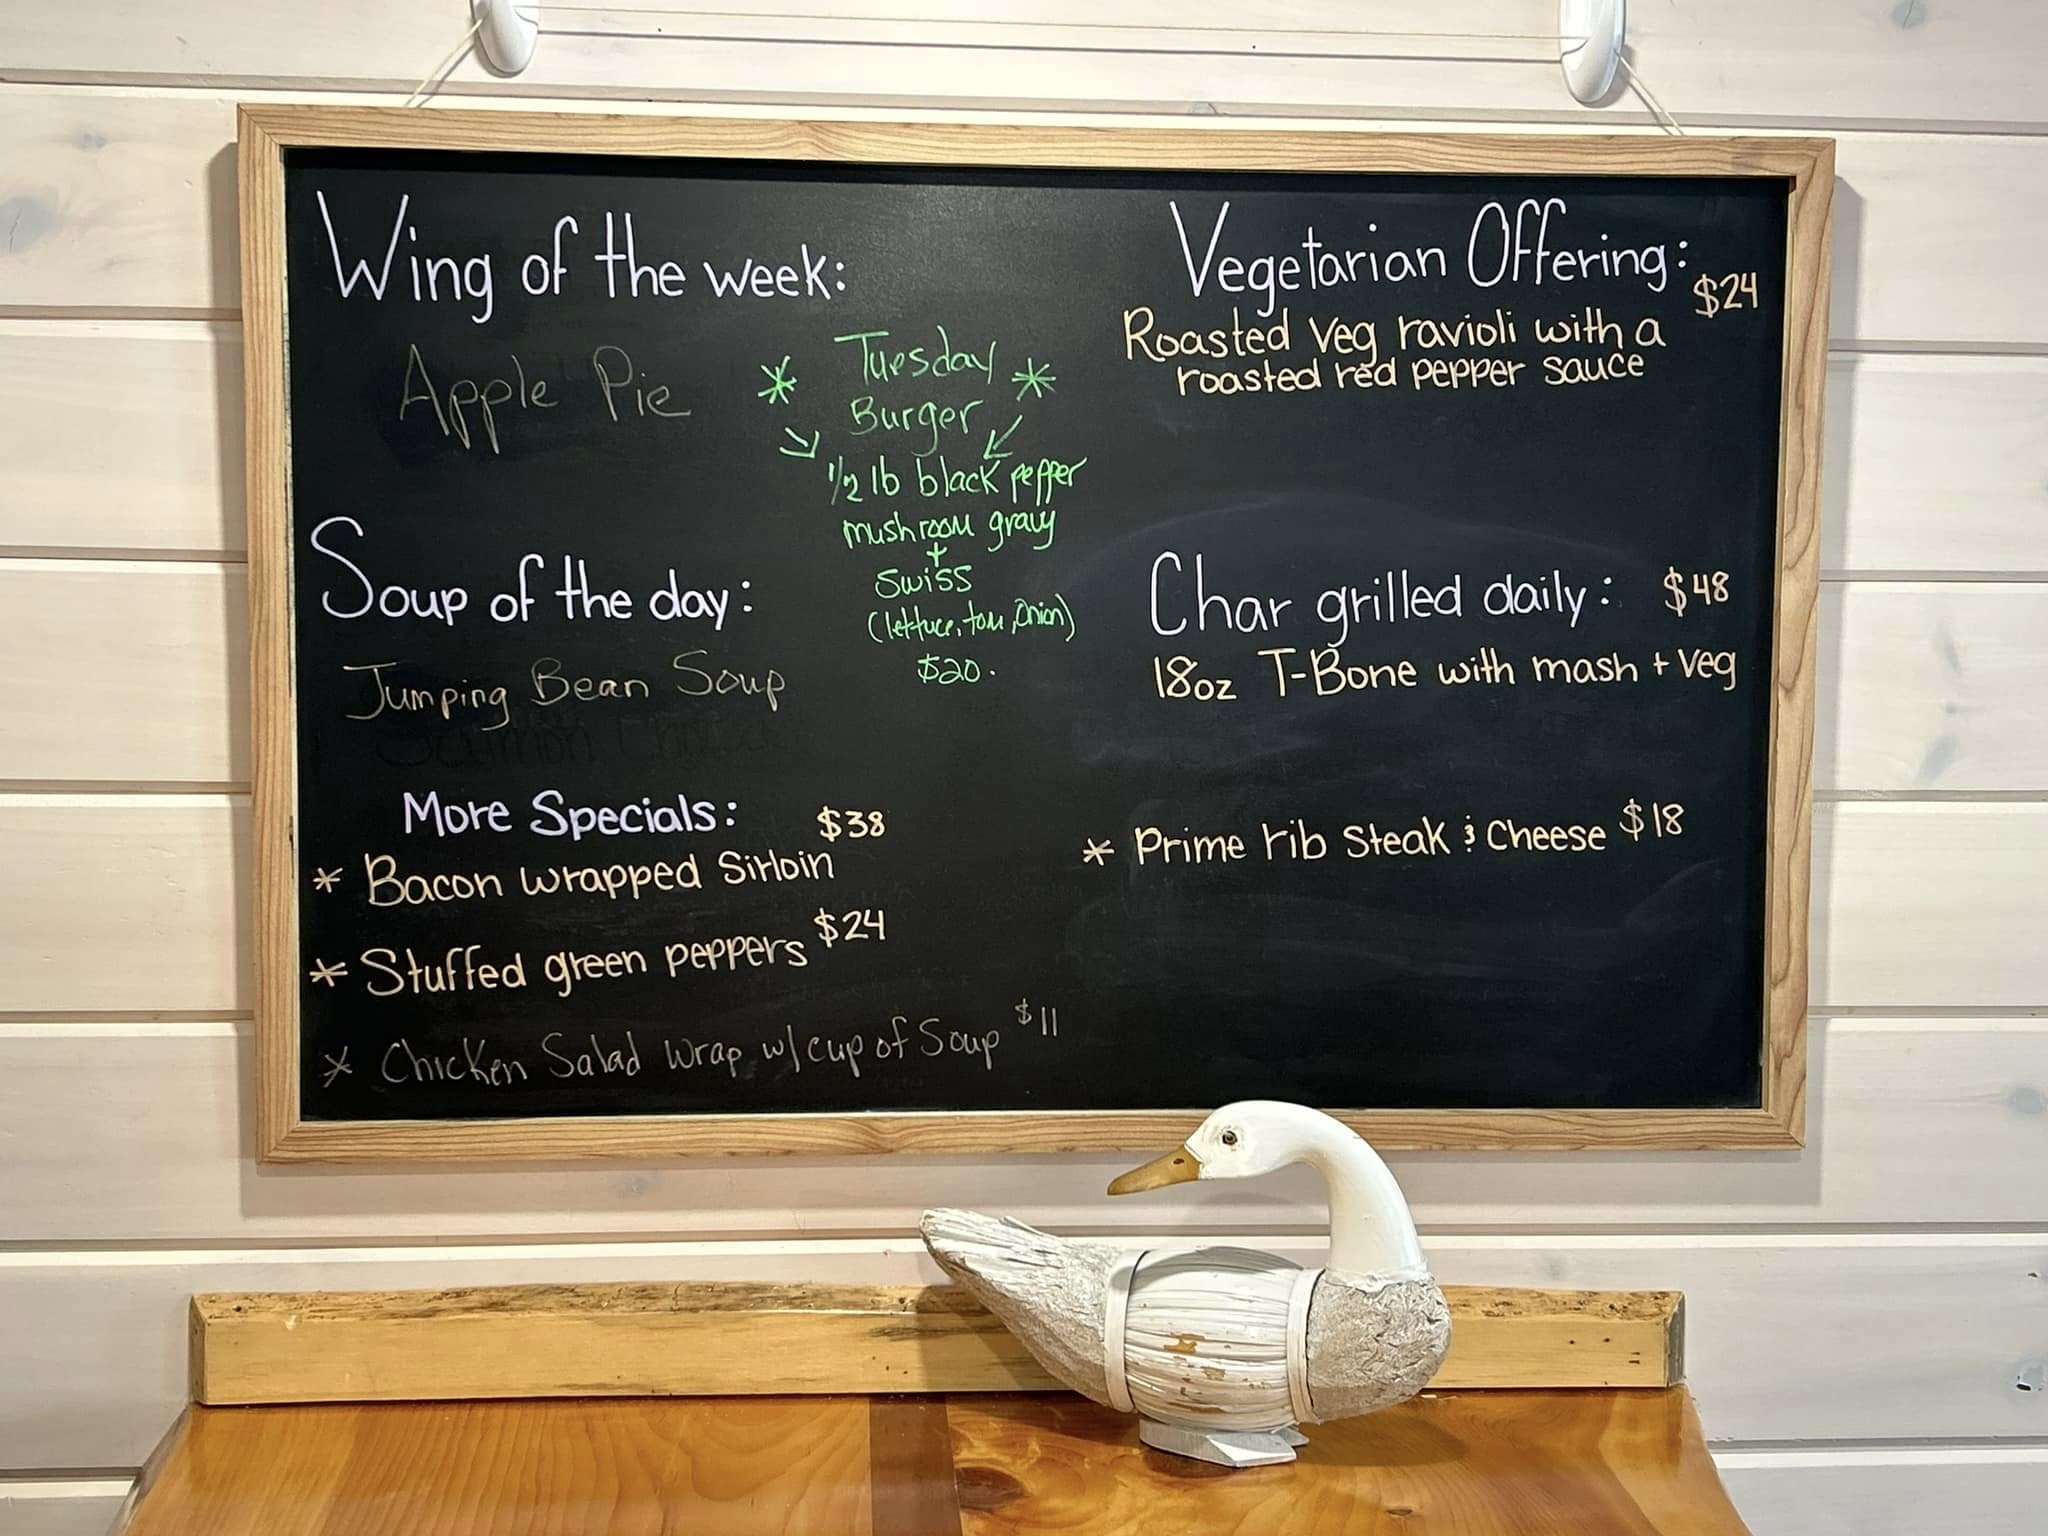 Wing of the week:
Apple Pie
* Tuesday *
Burger
1/2 lb black pepper
mushroom gravy
+
Swiss
(lettuce, tom, Onion)
$20.
Soup of the day:
Jumping Bean Soup
More Specials:
* Bacon wrapped Sirloin $38
* Stuffed green peppers $24
* Chicken Salad Wrap w/ cup of Soup $11
Vegetarian Offering:
$24
Roasted veg ravioli with a
roasted red pepper sauce
Char grilled daily: $48
18oz T-Bone with mash + veg
* Prime rib Steak & Cheese $18